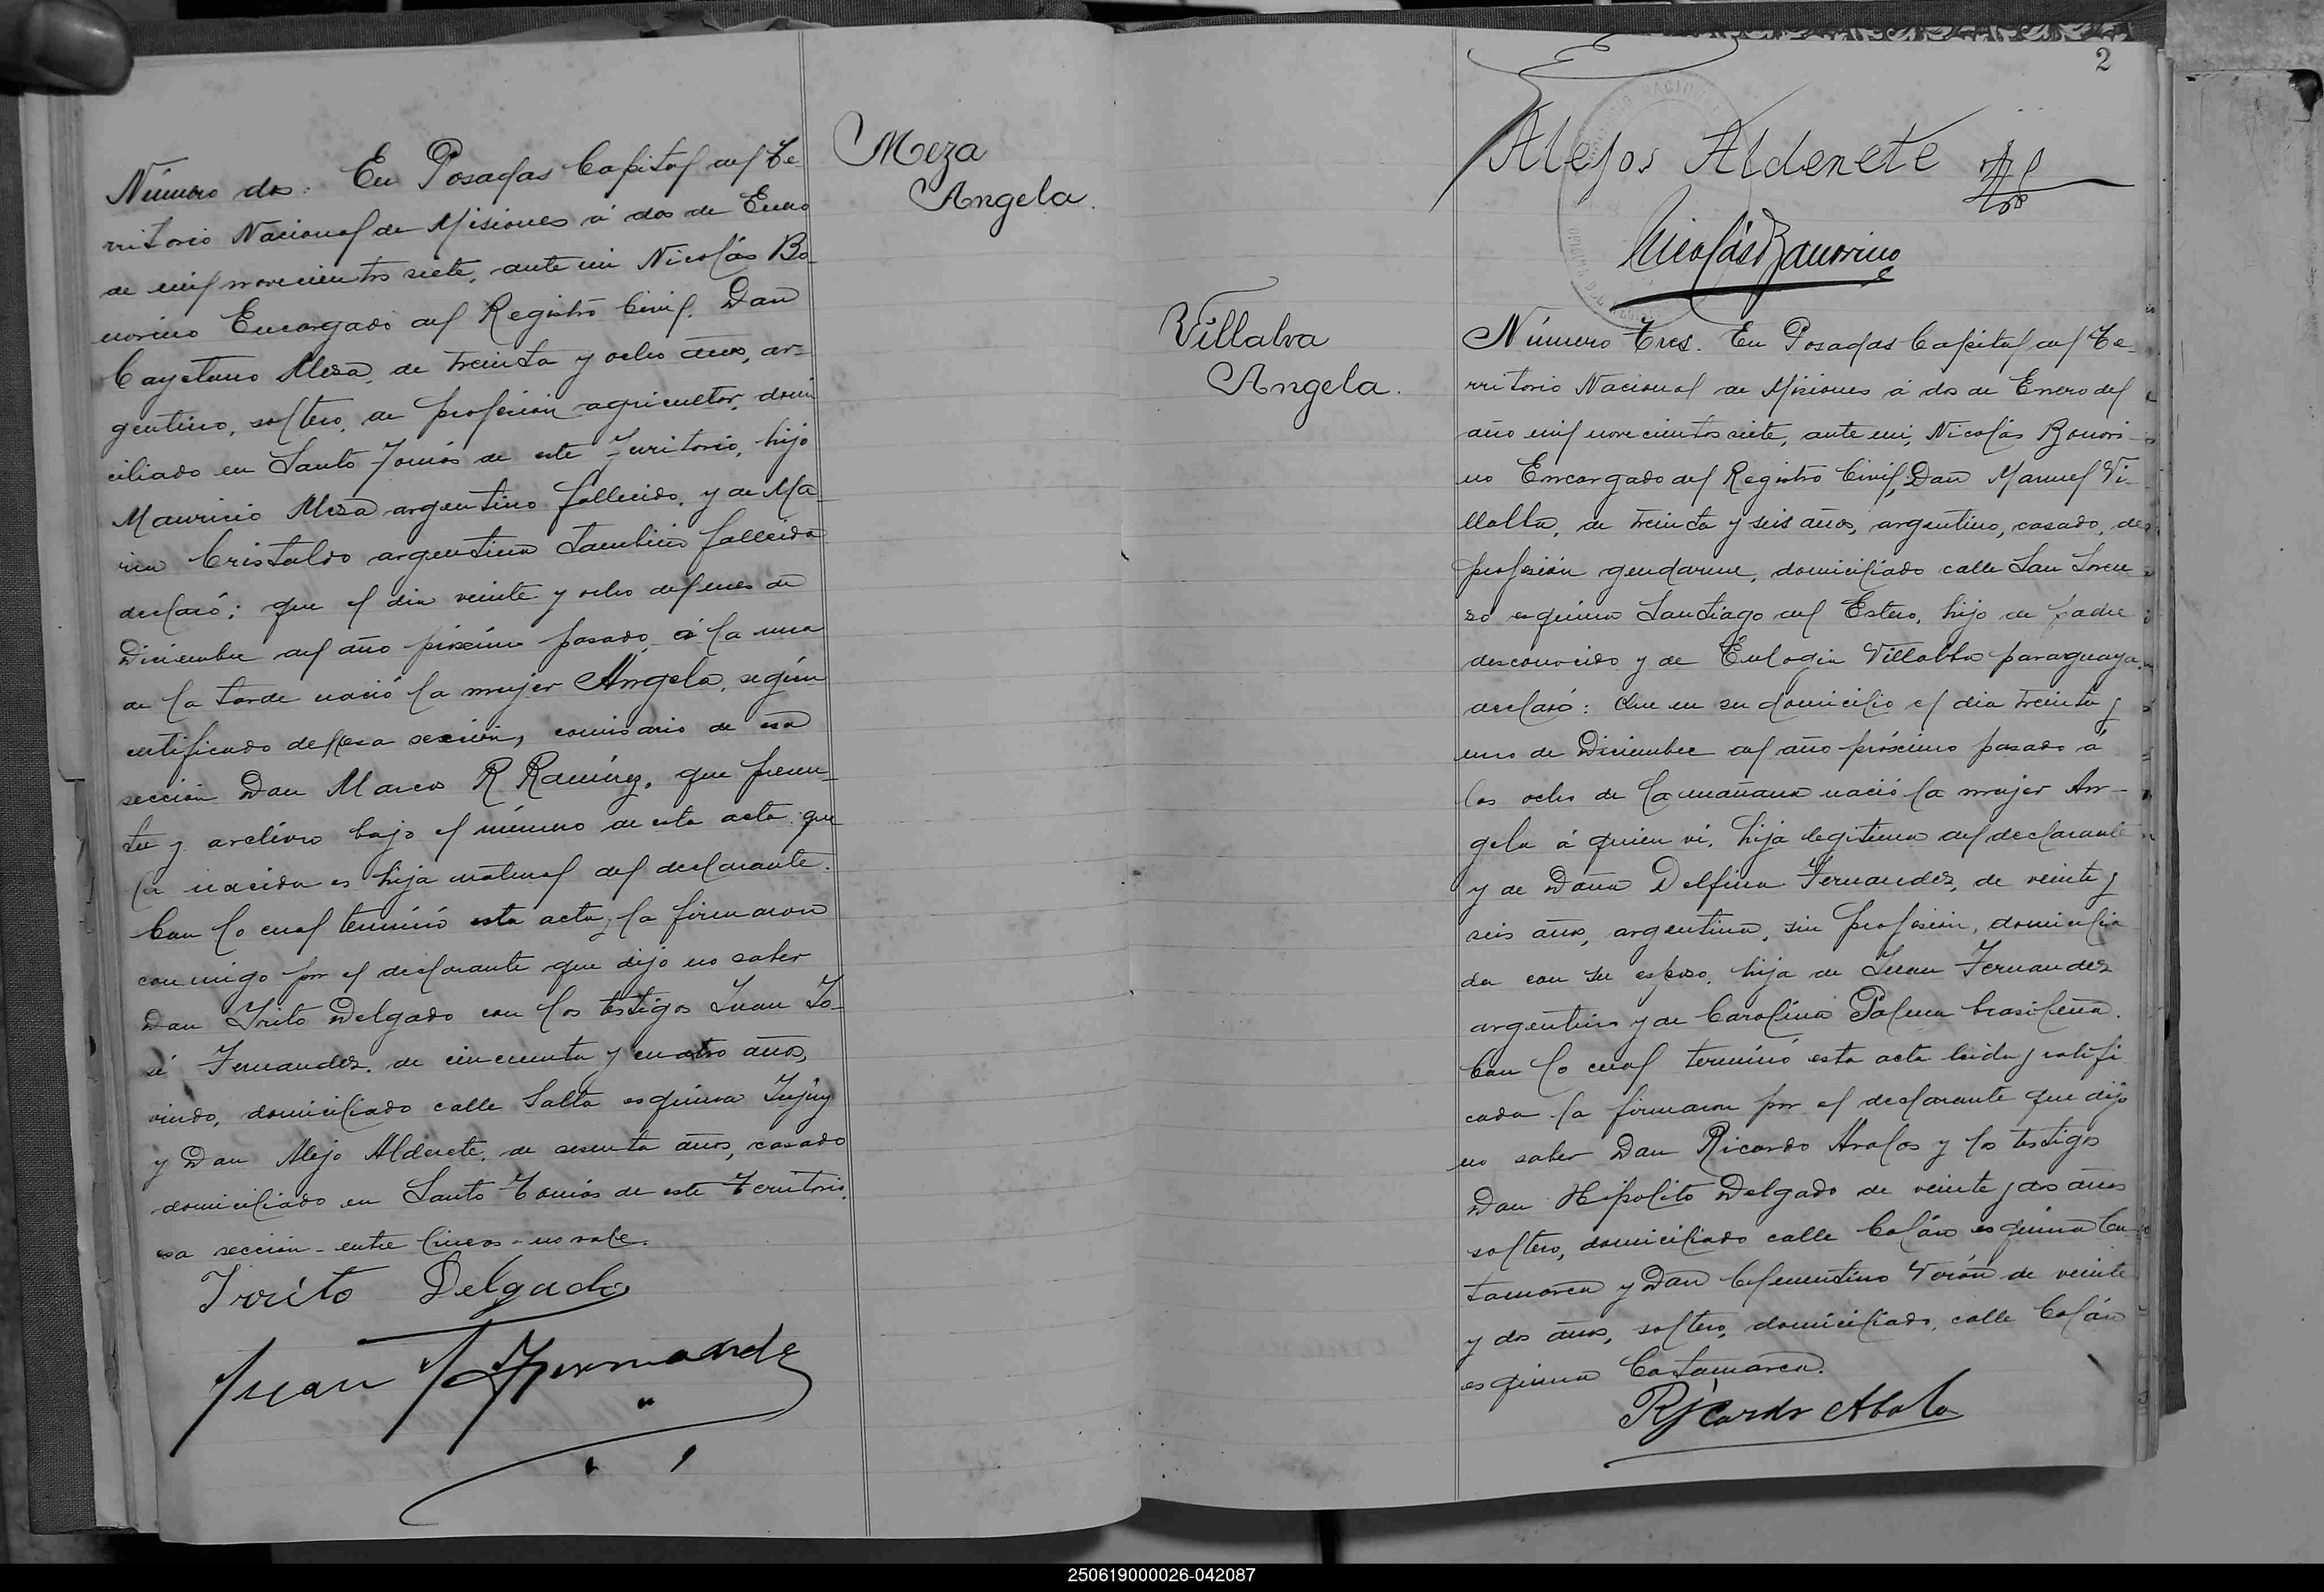 Número dos. En Posadas Capital del Te-
rritorio Nacional de Misiones á dos de Enero
de mil novecientos siete, ante mi Nicolás Bo-
norino Encargado del Registro Civil. Don
Cayetano Meza, de treinta y ocho años, ar-
gentino, soltero, de profesión agricultor, domi
ciliado en Santo Tomás de este Territorio, hijo
Mauricio Meza argentino fallecido, y de Ma-
ria Cristaldo argentina tambien fallecida
declaró: que el dia veinte y ocho del mes de
Diciembre del año próximo pasado á la una
de la tarde nació la mujer Angela, según
certificado de esa sección, comisario de esa
sección Don Marcos R Ramírez, que presen-
ta y archivo bajo el número de esta acta: que
la nacida es hija natural del declarante.
Con lo cual terminó esta acta, la firmaron
conmigo por el declarante que dijo no saber
Don Irrito Delgado con los testigos Juan Jo-
sé Fernandez, de cincuenta y cuatro años,
viudo, domiciliado calle Salta esquina Jujuy
y Don Alejo Alderete, de sesenta años, casado
domiciliado en Santo Tomás de este Territorio.
esa sección - entre lineas - no vale.
Irrito Delgado
Juan J Fernandez
Meza
Angela.
2
Alejos Alderete
Nicolás Bonorino
Villalva
Angela.
Número Tres. En Posadas Capital del Te-
rritorio Nacional de Misiones á dos de Enero del
año mil novecientos siete, ante mi, Nicolás Bonori-
no Encargado del Registro Civil, Don Manuel Vi-
llalba, de treinta y seis años, argentino, casado, de
profesión gendarme, domiciliado calle San Loren
zo esquina Santiago del Estero, hijo de padre
desconocido y de Eulogia Villalba paraguaya.
declaró: Que en su domicilio el dia treinta y
uno de Diciembre del año próximo pasado á
las ocho de la mañana nació la mujer An-
gela á quien ví, hija legitima del declarante
y de Doña Delfina Fernandez, de veinte y
seis años, argentina, sin profesión, domicilia
da con su esposo, hija de Juan Fernandez
argentino y de Carolina Palma brasileña.
Con lo cual terminó esta acta leida y ratifi
cada la firmaron por el declarante que dijo
no saber Don Ricardo Avalos y los testigos
Don Hipolito Delgado de veinte y dos años
soltero, domiciliado calle Colón esquina Ca-
tamarca y Don Clementino Verón de veinte
y dos años, soltero, domiciliado, calle Colón
esquina Catamarca.
Ricardo Abalo
250619000026-042087